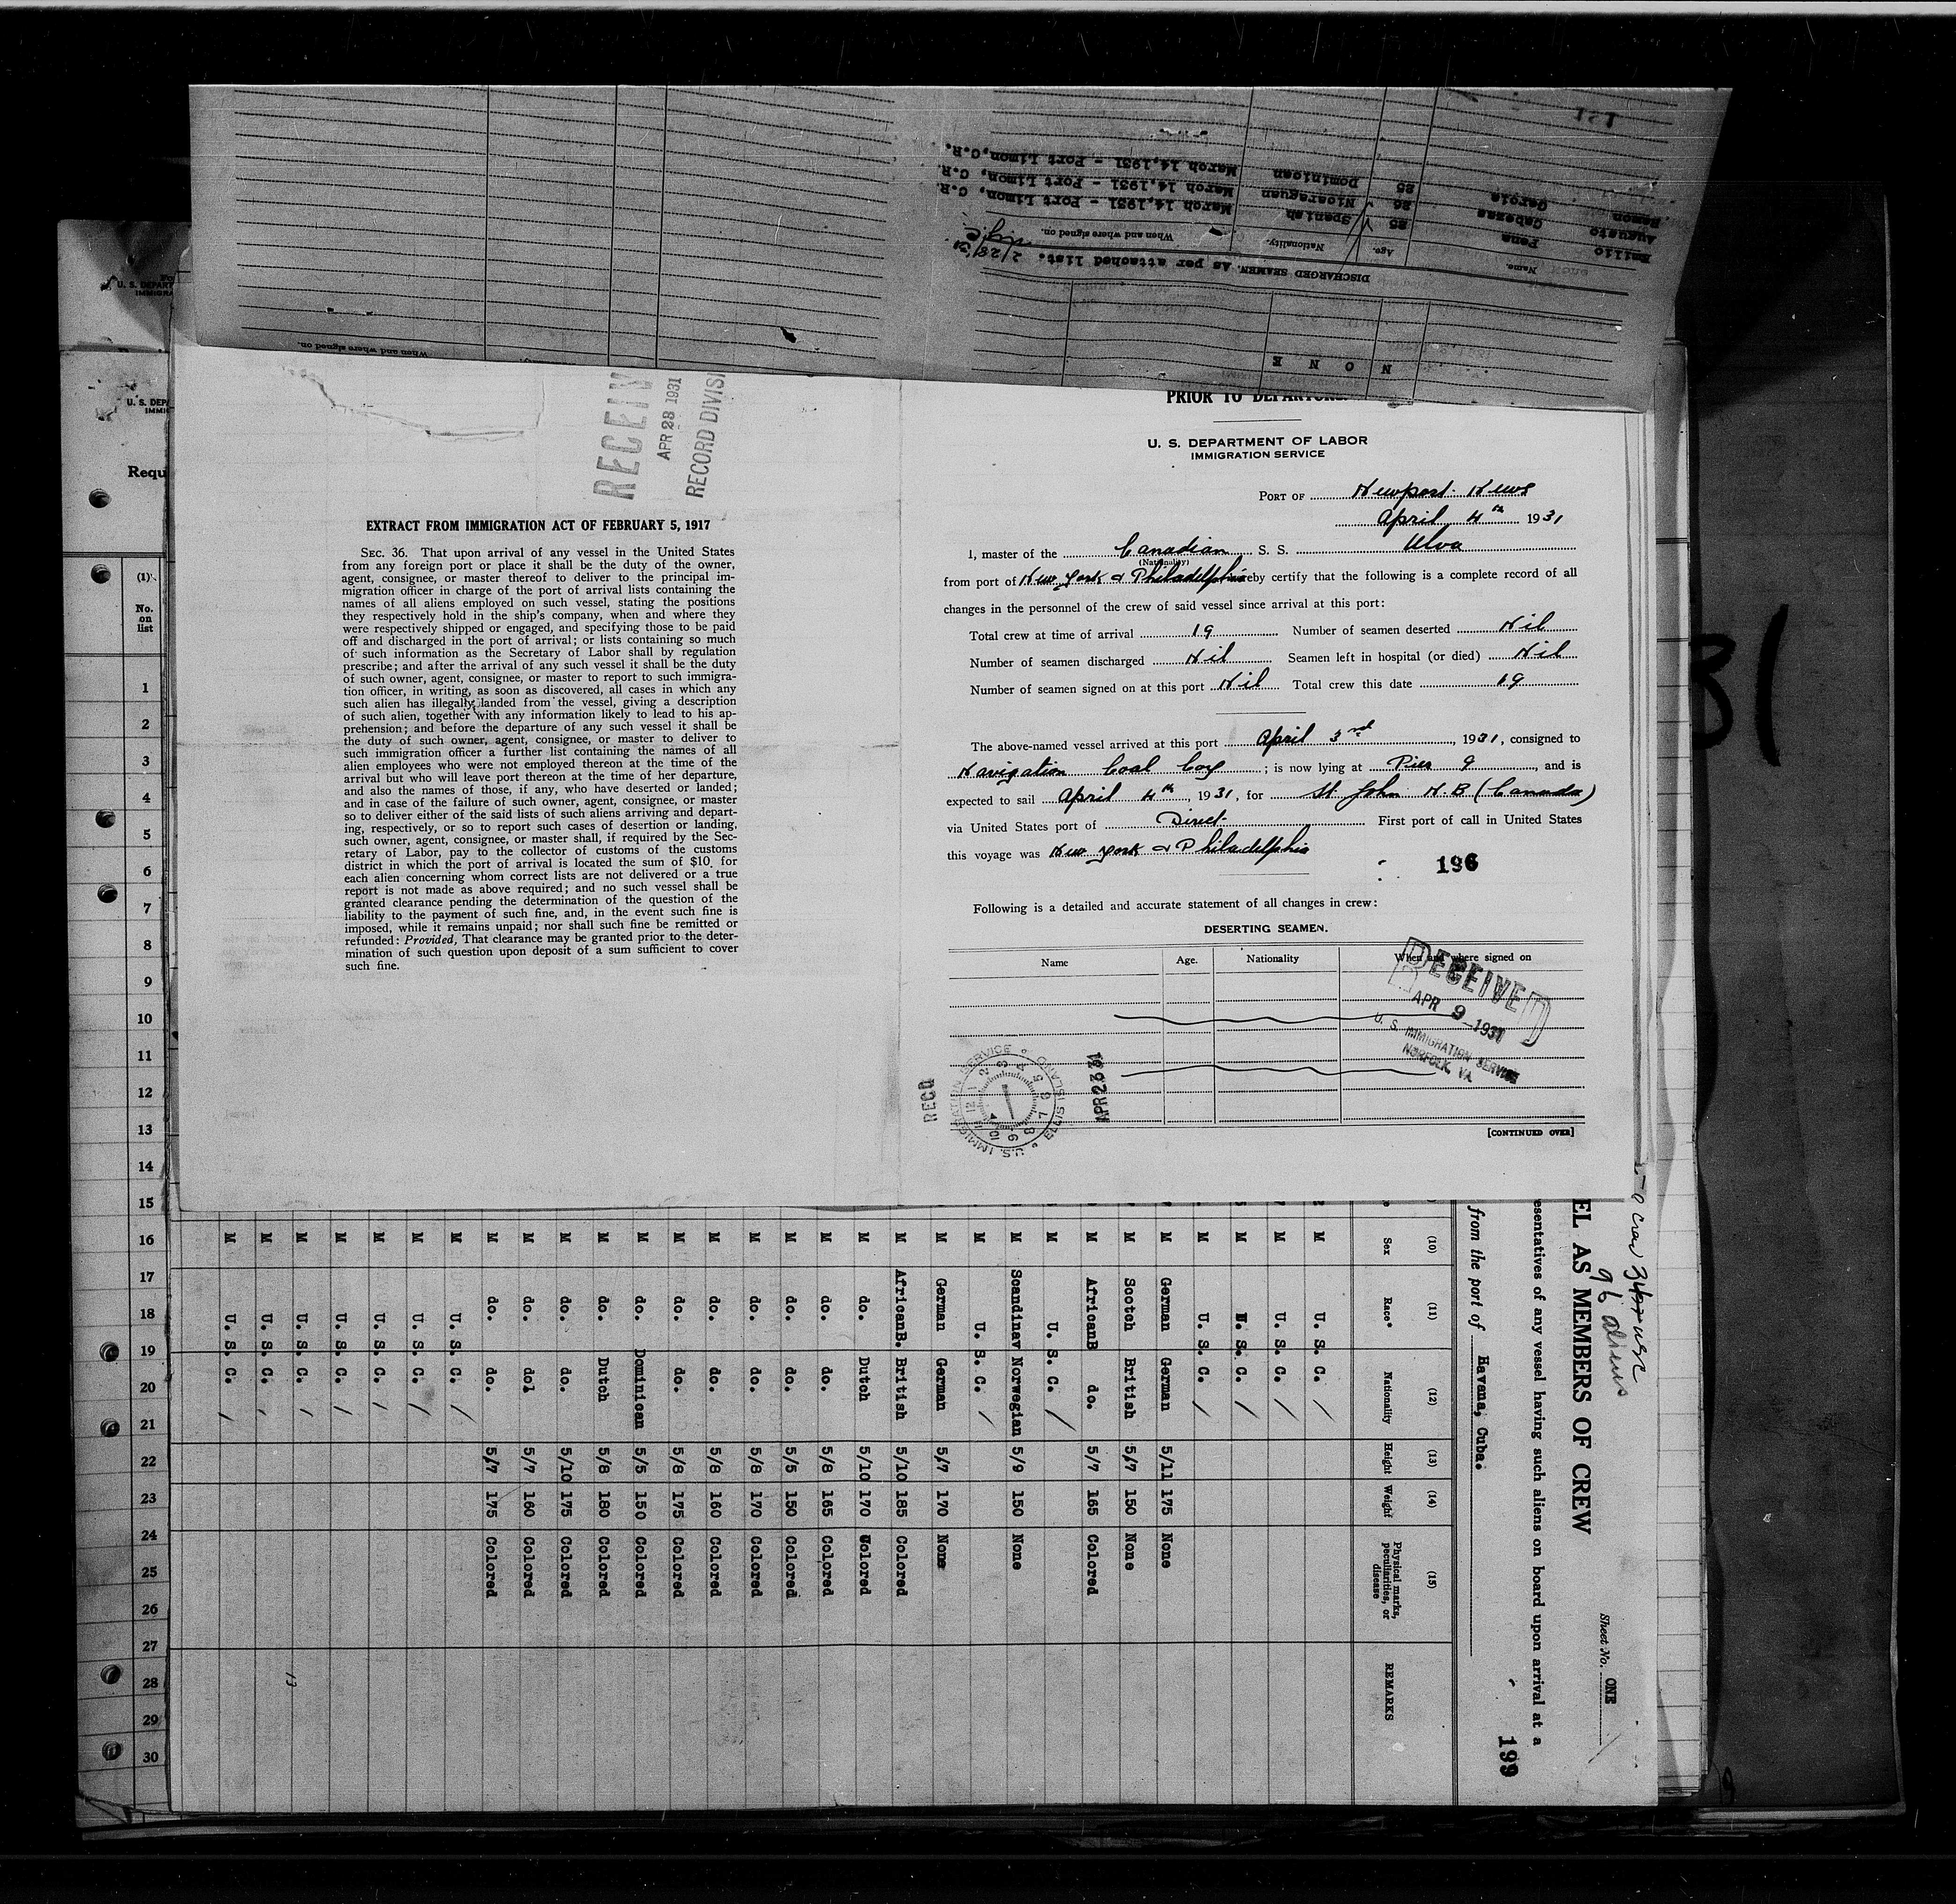 TST
Emilio Pena 25 Spanish March 14,1931 - Port Limon, C.R.
Augusto Cabezas 26 Nicaraguan March 14,1931 - Port Limon, C.R.
Ramon Garcia 25 Dominican March 14,1931 - Port Limon,C.R.
Name. Age. Nationality. When and where signed on.
DISCHARGED SEAMEN. As per attached list.
N O N E
When and where signed on.
RECEIV
APR 28 1931
RECORD DIVISI
EXTRACT FROM IMMIGRATION ACT OF FEBRUARY 5, 1917
SEC. 36. That upon arrival of any vessel in the United States
from any foreign port or place it shall be the duty of the owner,
agent, consignee, or master thereof to deliver to the principal im-
migration officer in charge of the port of arrival lists containing the
names of all aliens employed on such vessel, stating the positions
they respectively hold in the ship's company, when and where they
were respectively shipped or engaged, and specifying those to be paid
off and discharged in the port of arrival; or lists containing so much
of such information as the Secretary of Labor shall by regulation
prescribe; and after the arrival of any such vessel it shall be the duty
of such owner, agent, consignee, or master to report to such immigra-
tion officer, in writing, as soon as discovered, all cases in which any
such alien has illegally landed from the vessel, giving a description
of such alien, together with any information likely to lead to his ap-
prehension; and before the departure of any such vessel it shall be
the duty of such owner, agent, consignee, or master to deliver to
such immigration officer a further list containing the names of all
alien employees who were not employed thereon at the time of the
arrival but who will leave port thereon at the time of her departure,
and also the names of those, if any, who have deserted or landed;
and in case of the failure of such owner, agent, consignee, or master
so to deliver either of the said lists of such aliens arriving and depart-
ing, respectively, or so to report such cases of desertion or landing,
such owner, agent, consignee, or master shall, if required by the Sec-
retary of Labor, pay to the collector of customs of the customs
district in which the port of arrival is located the sum of $10 for
each alien concerning whom correct lists are not delivered or a true
report is not made as above required; and no such vessel shall be
granted clearance pending the determination of the question of the
liability to the payment of such fine, and, in the event such fine is
imposed, while it remains unpaid; nor shall such fine be remitted or
refunded: Provided, That clearance may be granted prior to the deter-
mination of such question upon deposit of a sum sufficient to cover
such fine.
PRIOR TO DEPARTURE
U. S. DEPARTMENT OF LABOR
IMMIGRATION SERVICE
PORT OF Newport News
April 4th 1931
I, master of the Canadian S. S. Ulva
(Nationality)
from port of New York & Philadelphia eby certify that the following is a complete record of all
changes in the personnel of the crew of said vessel since arrival at this port:
Total crew at time of arrival 19 Number of seamen deserted Nil
Number of seamen discharged Nil Seamen left in hospital (or died) Nil
Number of seamen signed on at this port Nil Total crew this date 19
The above-named vessel arrived at this port April 3rd, 1931, consigned to
Navigation Coal Coy; is now lying at Pier 9, and is
expected to sail April 4th, 1931, for St John N.B (Canada)
via United States port of Direct First port of call in United States
this voyage was New York & Philadelphia
196
Following is a detailed and accurate statement of all changes in crew:
DESERTING SEAMEN.
Name Age. Nationality When and where signed on
RECEIVED
APR 9 1931
U. S. IMMIGRATION SERVICE
NORFOLK, VA
RECD
U.S. IMMIGRATION SERVICE ELLIS ISLAND
APR 23 31
[CONTINUED OVER]
U. S. DEPART
IMMIGRA
U. S. DEP
IMMIG
Requ
(1)
No.
on
list
1
2
3
4
5
6
7
8
9
10
11
12
13
14
15
16
17
18
19
20
21
22
23
24
25
26
27
28
29
30
31
96 aliens
Sheet No. ONE
EL AS MEMBERS OF CREW
esentatives of any vessel having such aliens on board upon arrival at a
from the port of Havana, Cuba.
199
(10) (11) (12) (13) (14) (15)
Sex Race* Nationality Height Weight Physical marks, peculiarities, or disease REMARKS
M U. S. C.
M U. S. C.
M U. S. C.
M U. S. C.
M German German 5/11 175 None
M Scotch British 5/7 150 None
M AfricanB do. 5/7 165 Colored
M U. S. C.
M Scandinav Norwegian 5/9 150 None
M U. S. C.
M German German 5/7 170 None
M AfricanB. British 5/10 185 Colored
M do. Dutch 5/10 170 Colored
M do. do. 5/8 165 Colored
M do. do. 5/5 150 Colored
M do. do. 5/8 170 Colored
M do. do. 5/8 160 Colored
M do. do. 5/8 175 Colored
M do. Dominican 5/5 150 Colored
M do. Dutch 5/8 180 Colored
M do. do. 5/10 175 Colored
M do. do1 5/7 160 Colored
M do. do. 5/7 175 Colored
M U. S. C.
M U. S. C.
M U. S. C.
M U. S. C.
M U. S. C.
M U. S. C.
M U. S. C.